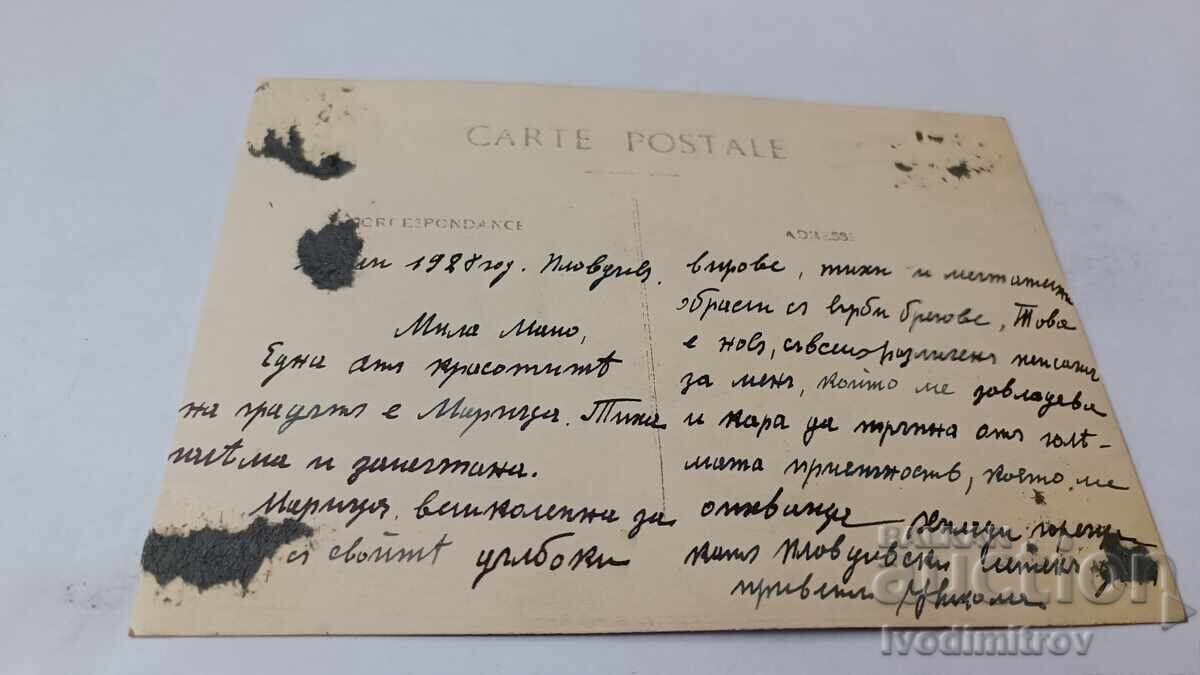 CARTE POSTALE
CORRESPONDANCE
ADRESSE
1928 год. Пловдивъ.
Мила Мано,
Една отъ красотитѣ
на градътъ е Марица. Тиха
нѣма и замечтана.
Марица, великолепна за
съ своитѣ дълбоки
вирове, тихи и мечтатени
обрасли съ върби брегове. Това
е новъ, съвсем различенъ пейзажъ
за менъ, който ме завладева
и кара да тръпна отъ голѣ-
мата приятность, която ме
отвежда
като Пловдивски летенъ
BALKAN
auction
Ivodimitrov